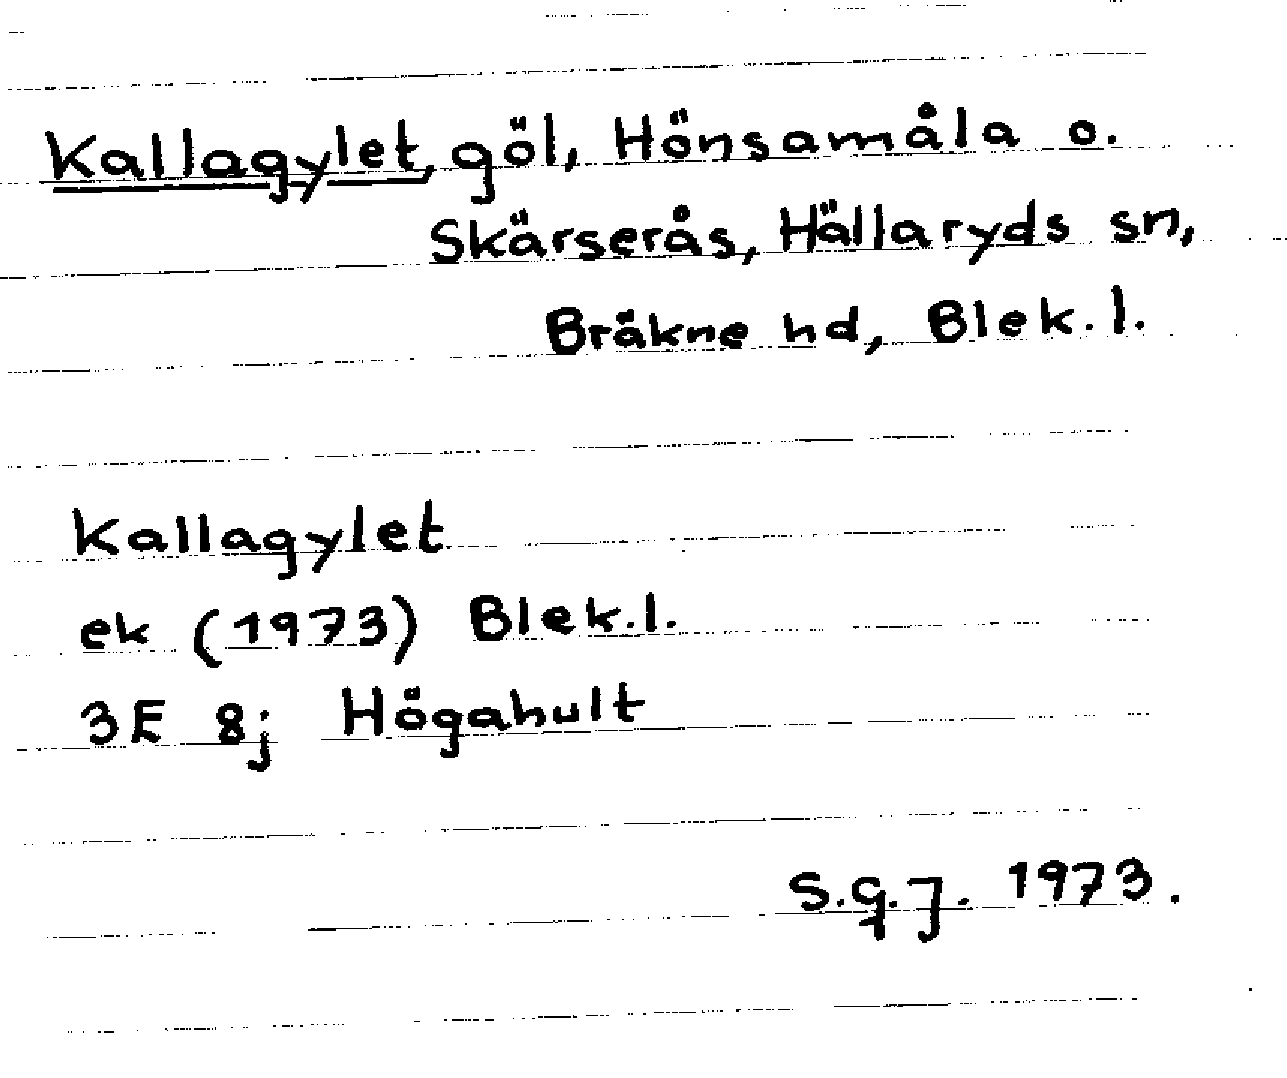 Kallagylet, göl, Hönsamåla o.
Skärserås, Hällaryds sn,
Bräkne hd, Blek. l.
Kallagylet
ek (1973) Blek. l.
3E 8j Högahult
S.G.J. 1973.